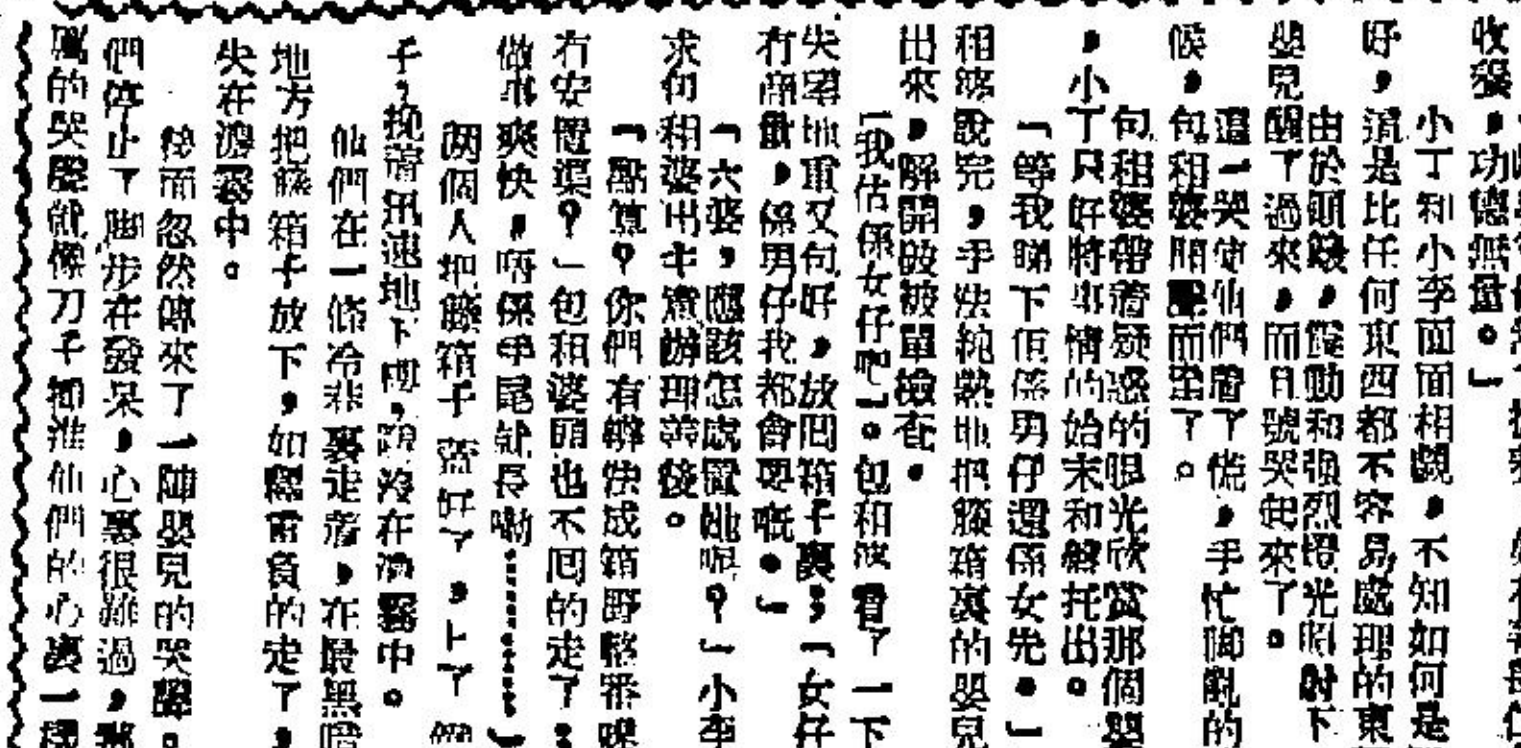 收穫，功德無量。」
小丁和小李面面相覷，不知如何是
好，這是比任何東西都不容易處理的東
由於頭錢，震動和强烈燈光照射下
嬰兒醒了過來，而且號哭起來了。
這一哭使他們着了慌，手忙脚亂的
候，包租婆開聲而至了。
包租婆帶着疑惑的眼光欣賞那個嬰
，小丁只好將事情的始末和盤托出。
「等我睇下佢係男仔還係女先。」
租婆說完，手法純熟地把籐箱裏的嬰兒
出來，解開被單檢查。
「我估係女仔吧」。包租婆看了一下
失望地重又包好，放囘箱子裏；「女仔
冇商量，係男仔我都會要嘅。」
「六婆，應該怎處置她呢？」小李
求包租婆出主意辦理善後。
「點算？你們有辦法成箱野整番嚟
冇安置渠？」包租婆頭也不囘的走了；
做事爽快，唔係手尾就長嘞………」
兩個人把籐箱子蓋好了，上了
子，挽着迅速地下樓，隱沒在濃霧中。
他們在一條冷巷裏走着，在最黑暗
地方把籐箱子放下，如釋重負的走了，
失在濃霧中。
後面忽然傳來了一陣嬰兒的哭聲。
們停止了脚步在發呆，心裏很難過，那
厲的哭聲就像刀子插進他們的心裏一樣